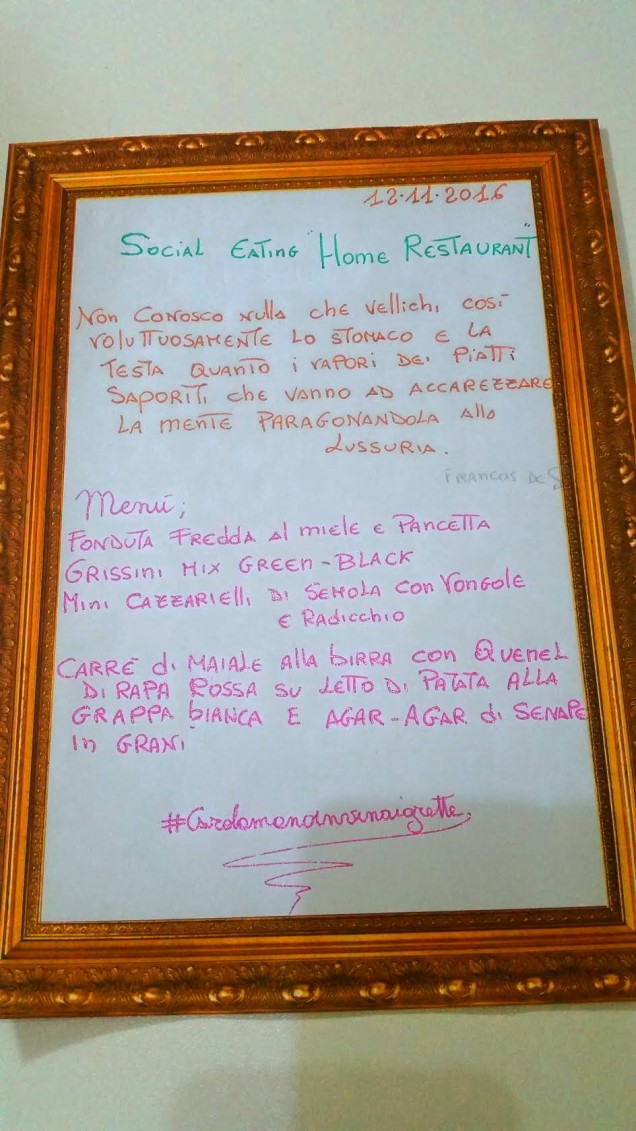 12.11.2016
SOCIAL EATING "HOME RESTAURANT"
NON CONOSCO NULLA CHE VELLICHI COSÌ
VOLUTTUOSAMENTE LO STOMACO E LA
TESTA QUANTO I VAPORI DEI PIATTI
SAPORITI, CHE VANNO AD ACCAREZZARE
LA MENTE PARAGONANDOLA ALLO
LUSSURIA.
FRANCOS DE S
Menú;
FONDUTA FREDDA AL MIELE E PANCETTA
GRISSINI MIX GREEN-BLACK
MINI CAZZARIELLI DI SEMOLA CON VONGOLE
E RADICCHIO
CARRÈ DI MAIALE ALLA BIRRA CON QUENEL
DI RAPA ROSSA SU LETTO DI PATATA ALLA
GRAPPA BIANCA E AGAR-AGAR DI SENAPE
IN GRANI